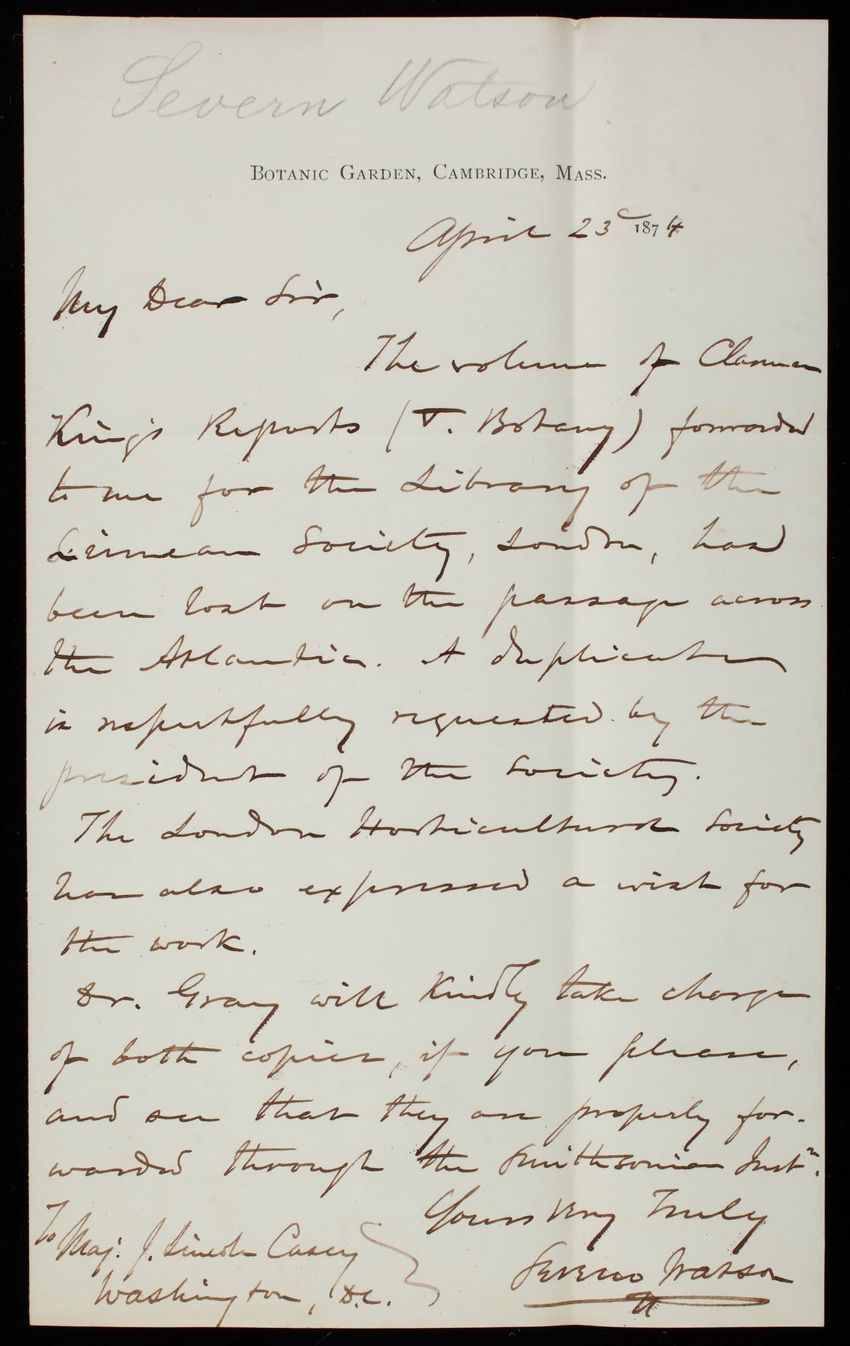 Severn Watson.
BOTANIC GARDEN, CAMBRIDGE, MASS.
April 23d 1874
My Dear Sir,
The volume of Clarence
King's Reports (V. Botany) forwarded
to me for the Library of the
Linnean Society, London, has
been lost on the passage across
the Atlantic. A duplicate
is respectfully requested by the
president of the Society.
The London Horticultural Society
has also expressed a wish for
the work.
Dr. Gray will kindly take charge
of both copies, if you please,
and see that they are properly for-
warded through the Smithsonian Instn.
Yours Very Truly
Sereno Watson
To Maj. J. Lincoln Casey
Washington, D.C.